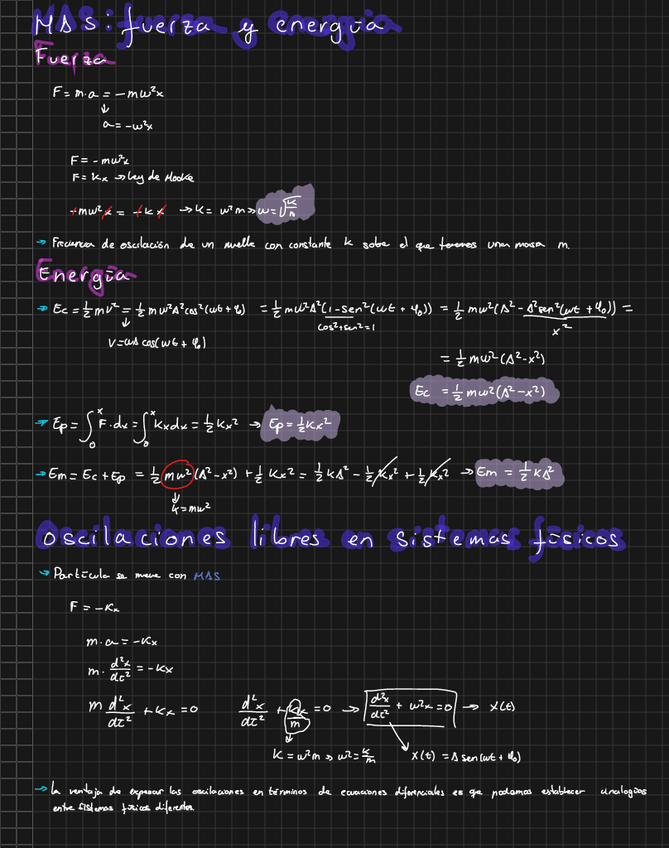 MAS: fuerza y energía
Fuerza
F = m·a = -mω²x
↓
a = -ω²x
F = -mω²x
F = Kx → Ley de Hooke
-mω²x = -kx → k = ω²m → ω = √(k/m)
→ Frecuencia de oscilación de un muelle con constante k sobre el que tenemos una masa m.
Energía
→ Ec = 1/2 mv² = 1/2 mω²A²cos²(ωt + φ₀) = 1/2 mω²A²(1-sen²(ωt + φ₀)) = 1/2 mω²(A² - A²sen²(ωt + φ₀)) =
↓ cos²+sen²=1 x²
v = ωA cos(ωt + φ₀)
= 1/2 mω²(A²-x²)
Ec = 1/2 mω²(A²-x²)
→ Ep = ∫₀ˣ F·dx = ∫₀ˣ Kxdx = 1/2 Kx² → Ep = 1/2 Kx²
→ Em = Ec + Ep = 1/2 mω²(A²-x²) + 1/2 Kx² = 1/2 kA² - 1/2 kx² + 1/2 kx² → Em = 1/2 kA²
↓
k = mω²
Oscilaciones libres en sistemas físicos
→ Partícula se mueve con MAS
F = -Kx
m·a = -Kx
m· d²x/dt² = -Kx
m d²x/dt² + Kx = 0 d²x/dt² + Kx/m = 0 → d²x/dt² + ω²x = 0 → x(t)
K = ω²m → ω² = K/m x(t) = A sen(ωt + φ₀)
→ La ventaja de expresar las oscilaciones en términos de ecuaciones diferenciales es que podamos establecer analogías
entre sistemas físicos diferentes